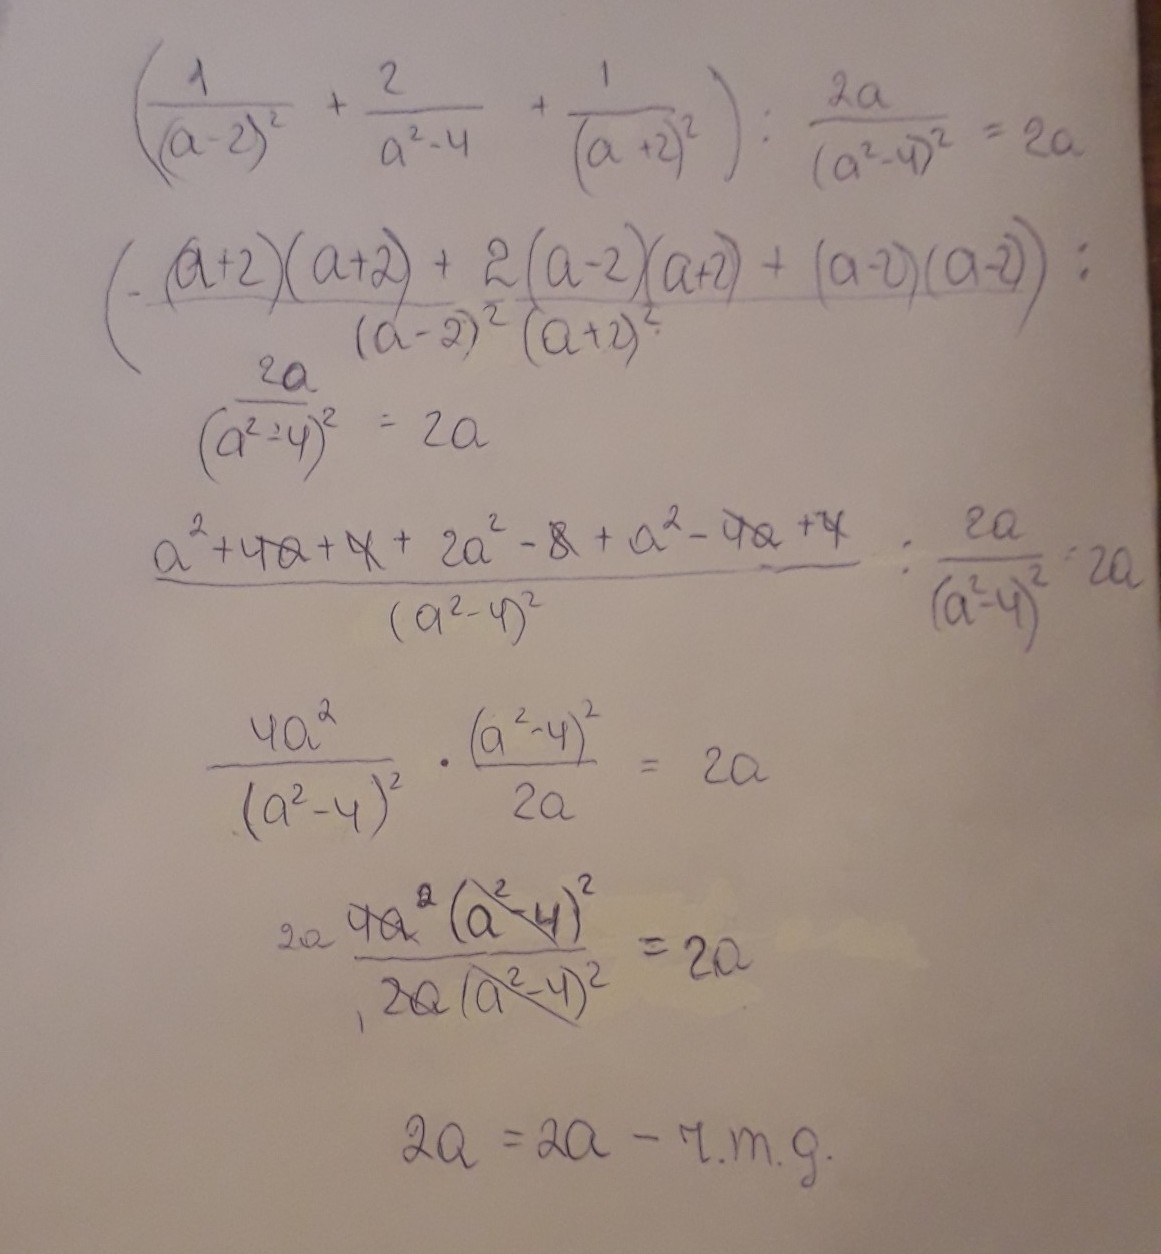 (1/(a-2)² + 2/(a²-4) + 1/(a+2)²) : 2a/(a²-4)² = 2a
((a+2)(a+2) + 2(a-2)(a+2) + (a-2)(a-2))/((a-2)²(a+2)²) :
2a/(a²-4)² = 2a
(a²+4a+4+2a²-8+a²-4a+4)/(a²-4)² : 2a/(a²-4)² = 2a
4a²/(a²-4)² · (a²-4)²/2a = 2a
2a 4a²(a²-4)²/(1 2a(a²-4)²) = 2a
2a = 2a - ч.т.д.